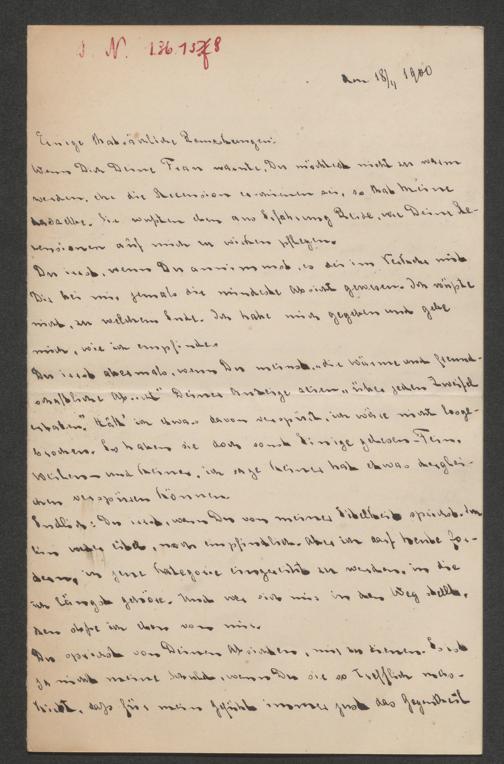 J. N. 136.753/8
am 18/4 1900
Einige thatsächliche Bemerkungen:
Wenn Dich Deine Frau warnte, Du möchtest nicht zu warm
werden, ehe die Recension erschienen sei, so that Meine
dasselbe. Sie wußten eben aus Erfahrung Beide, wie Deine Re-
censionen auf mich zu wirken pflegen.
Du irrst, wenn Du annimmst, es sei im Verkehr mit
Dir bei mir jemals die mindeste Absicht gewesen. Ich wüßte
nicht, zu welchem Ende. Ich habe mich gegeben und gebe
mich, wie ich empfinde.
Du irrst abermals, wenn Du meinst, „die Wärme und freund-
schaftliche Absicht" Deiner Anzeige seien „über jeden Zweifel
erhaben." Hätt' ich etwas davon verspürt, ich wäre nicht losge-
brochen. So haben sie doch sonst Einige gelesen
und Keiner, ich sage Keiner hat etwas derglei-
chen verspüren können.
Endlich: Du irrst, wenn Du von meiner Eitelkeit sprichst. Ich
bin weder eitel, noch empfindlich. Aber ich darf heute for-
dern, in jene Kategorie eingereiht zu werden, in die
ich längst gehöre. Und wer sich mir in den Weg stellt,
den stoße ich eben von mir.
Du sprichst von Deinen Absichten, mir zu dienen. Es ist
ja nicht meine Schuld, wenn Du sie so trefflich
, daß für mein Gefühl immer just das Gegentheil